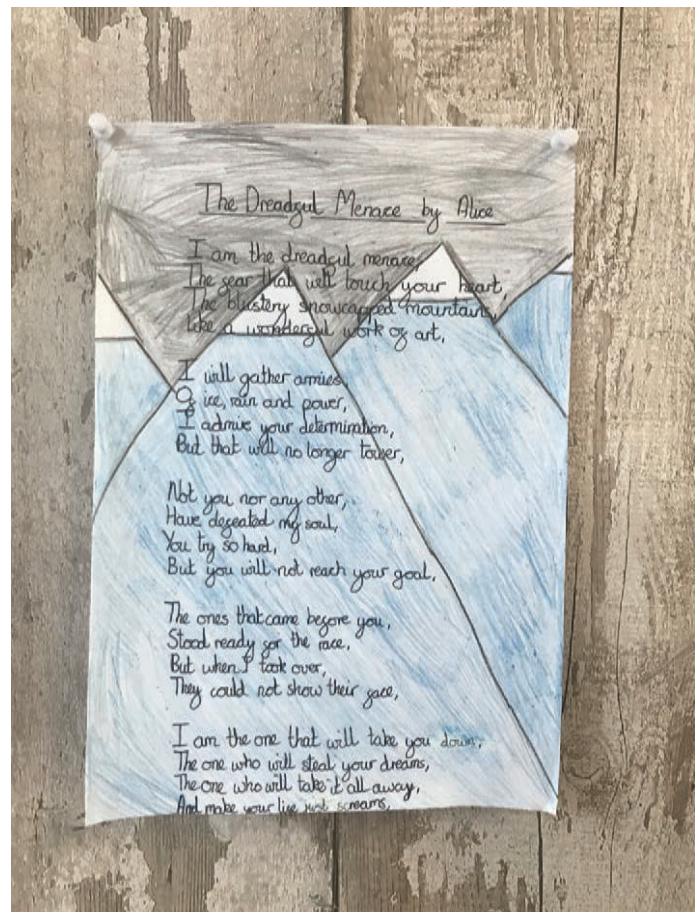 The Dreadful Menace by Alice
I am the dreadful menace,
The fear that will touch your heart,
The blustery snowcapped mountains,
Like a wonderful work of art,
I will gather armies,
Of ice, rain and power,
I admire your determination,
But that will no longer tower,
Not you nor any other,
Have defeated my soul,
You try so hard,
But you will not reach your goal,
The ones that came before you,
Stood ready for the race,
But when I took over,
They could not show their face,
I am the one that will take you down,
The one who will steal your dreams,
The one who will take it all away,
And make your live just screams,